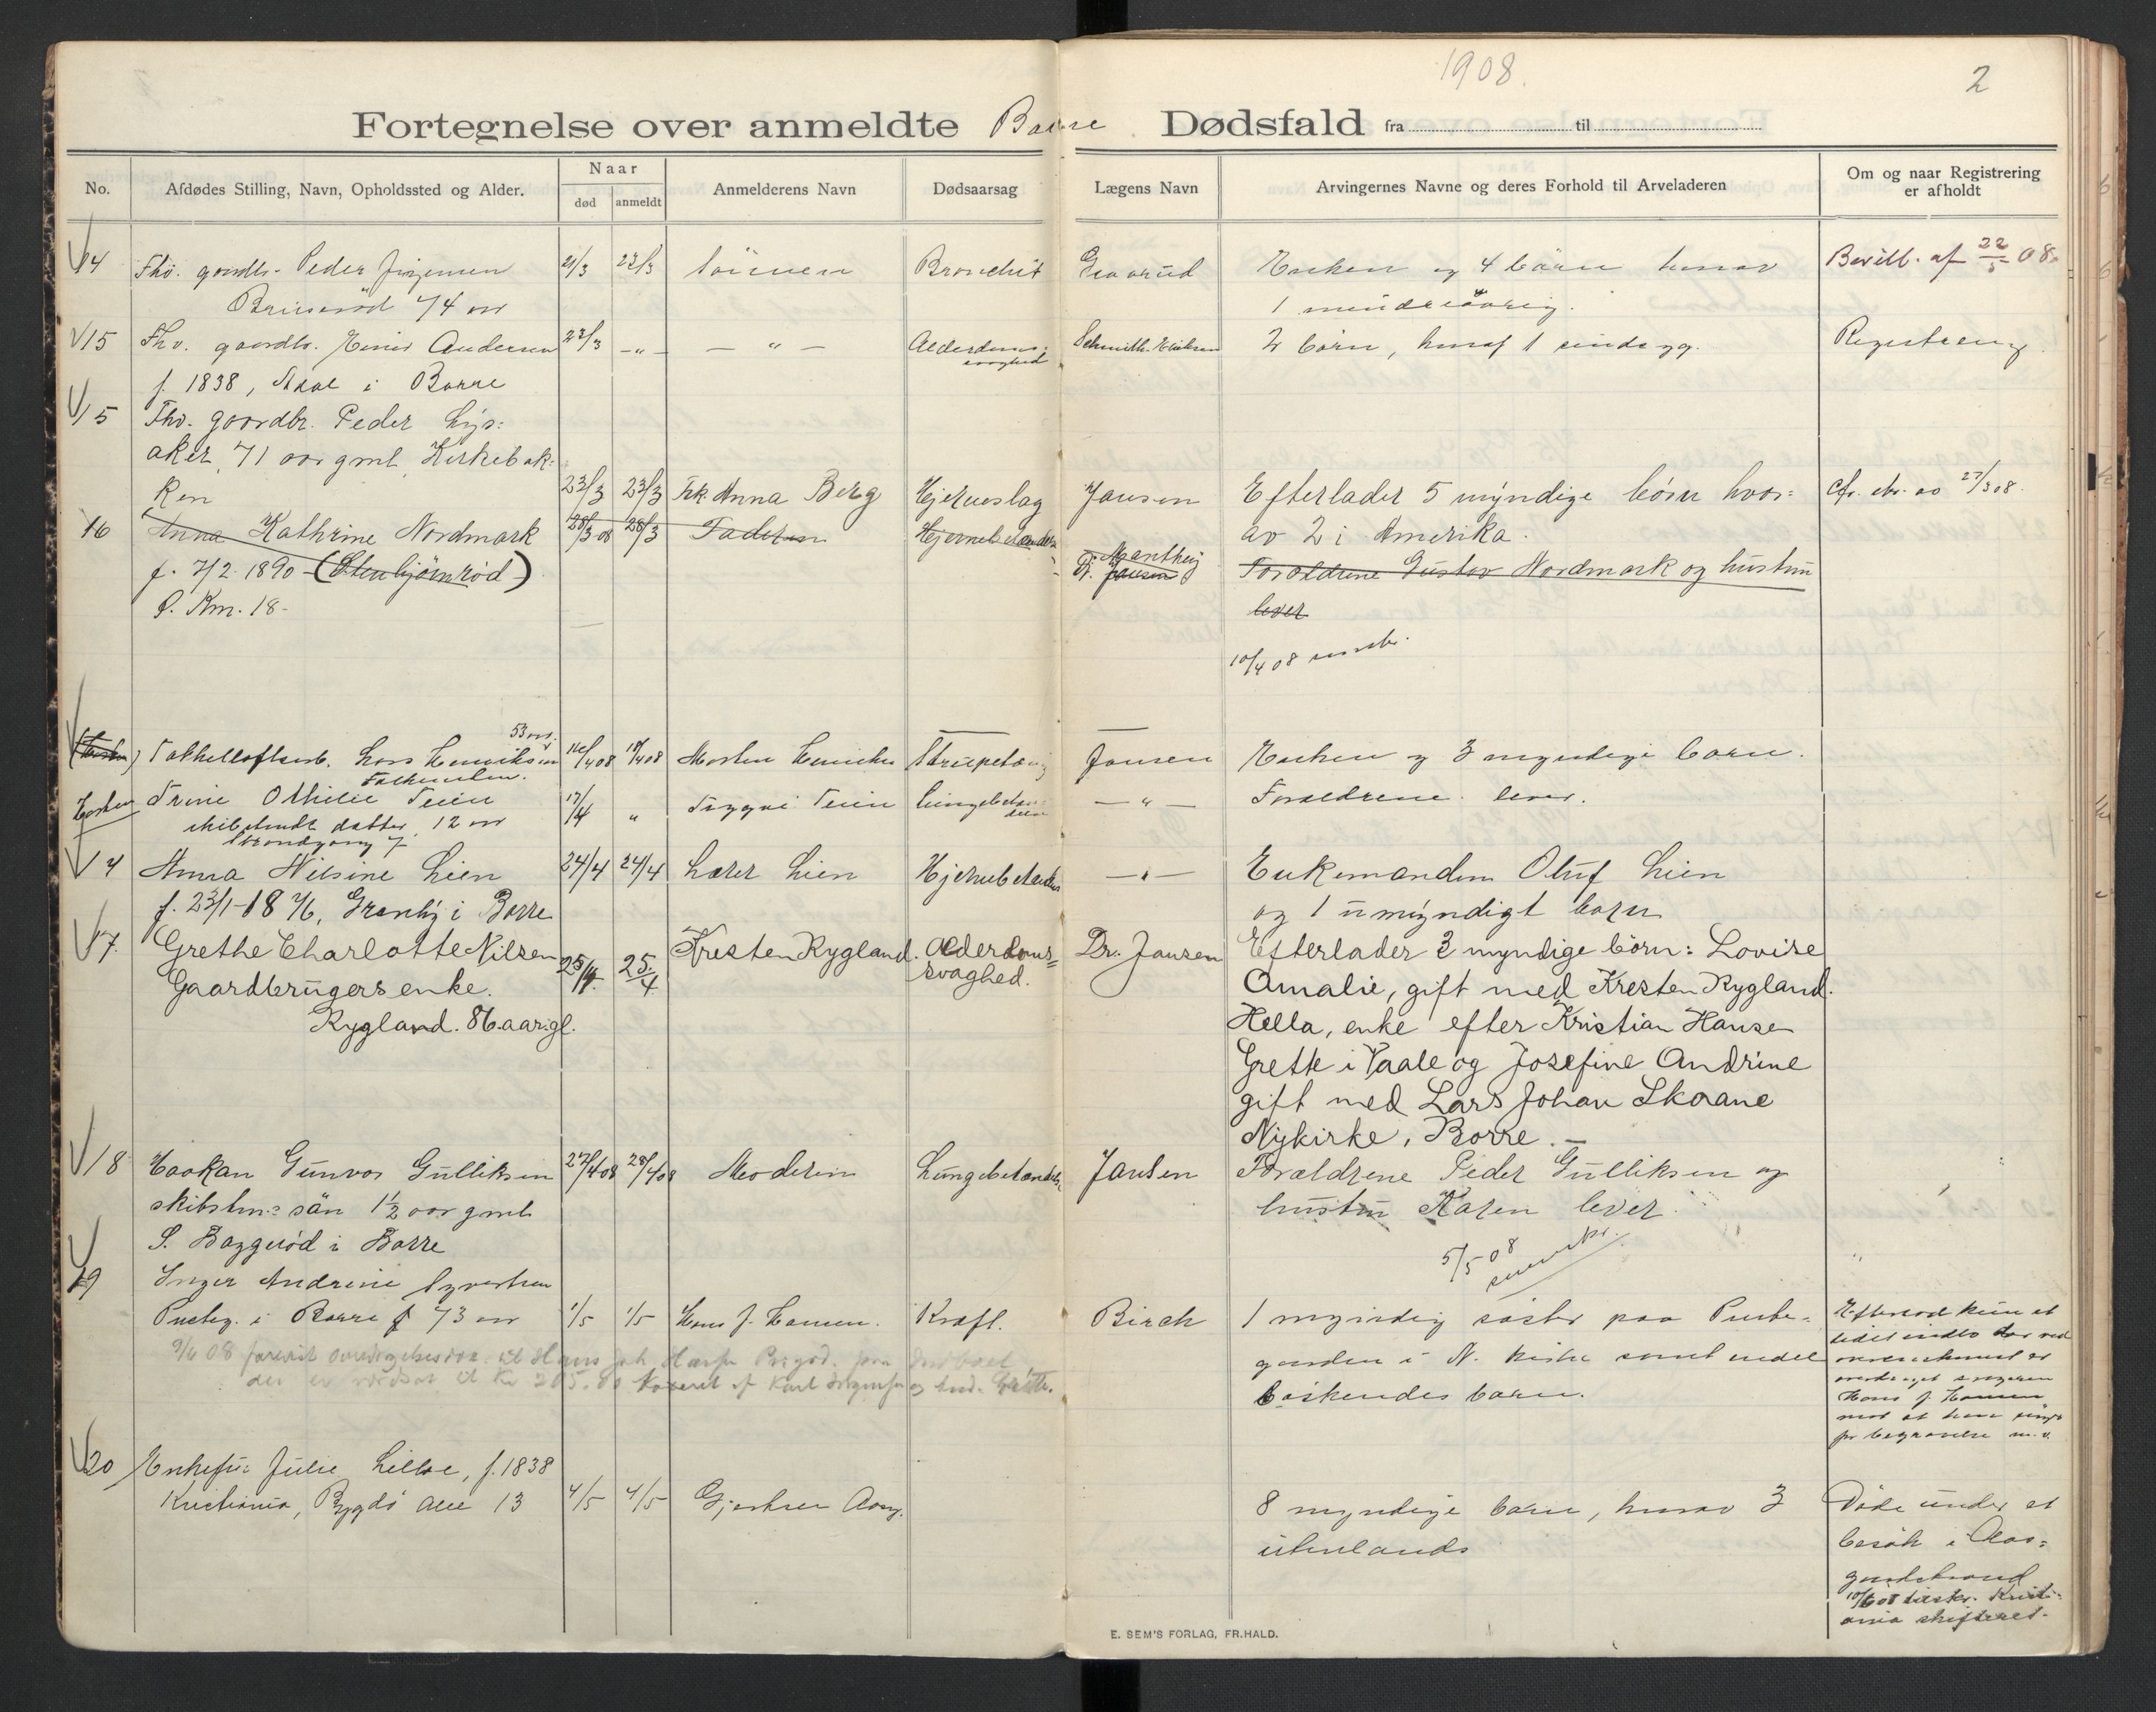 1908.
2
Fortegnelse over anmeldte Borre Dødsfald fra til
No.
Afdødes Stilling, Navn, Opholdssted og Alder.
Naar
død
anmeldt
Anmelderens Navn
Dødsaarsag
Lægens Navn
Arvingernes Navne og deres Forhold til Arveladeren
Om og naar Registrering
er afholdt
14 Fhv. gaardbr. Peder Jørgensen 21/3 23/3 Sönnen Bronchit Graarud Enken og 4 börn hvorav Bevill. af 22/5 08.
74 aar 1 mindreaarig.
15 Fhv. gaardbr. Andersen 23/3 -"- - " - Alderdoms- 2 börn, hvoraf 1 sindsyg. Registrering
svaghed
f. 1838, i Borre
15 Fhv. gaardbr. Peder Lys-
aker, 71 aar gml. Kirkebak-
ken 23/3 23/3 Frk. Anna Berg Hjerneslag Jansen Efterlader 5 myndige börn hvor- 27/3 08.
av 2 i Amerika.
16 Anna Kathrine Nordmark 28/3 08 28/3 Faderen Hjernebetændelse
f. 7/2 1890 (Stenbjörnröd) Dr. Jansen Manthey Forældrene Gustav Nordmark og hustru
Ö. Km. 18- lever
10/4 08
53 aar.
(Horten) Lars Henriksen 16/4 08 18/4 08 Morten Henriksen Strupetæring Jansen Enken og 3 myndige börn.
Falkensten.
Horten Trine Othilie Teien 17/4 " Trygve Teien Lungebetæn- - " - Forældrene lever.
delse
datter, 12 aar
Strandgang 7
Anna Nilsine Lien 24/4 24/4 Lærer Lien Hjernebetændelse - " - Enkemanden Oluf Lien
f. 23/1-1876, Granly i Borre og 1 umyndigt barn
17. Grethe Charlotte Nilsen 25/4. 25./4. Kresten Rygland. Alderdoms- Dr. Jansen Efterlader 3 myndige börn: Lovise
Gaardbrugers enke. svaghed. Amalie, gift med Kresten Rygland.
Rygland. 86. aar. gl. Hella, enke efter Kristian Hansen
Grette i Vaale og Josefine Andrine
gift med Lars Johan Skaane
Nykirke, Borre. -
18 Haakan Gunvor Gulliksen 27/4 08 28/4 08 Moderen Lungebetændelse Jansen Forældrene Peder Gulliksen og
skibstm. sön 1½ aar gml. hustru Karen lever.
S. Baggeröd i Borre
5/5 08
19 Inger Andrine Syvertsen
i Borre f 73 aar 1/5 1/5 Hans J. Hansen. Kræft. Birch 1 myndig söster paa Puste-
gaarden i N. kirke samt endel
söskendes barn.
9/6 08 Hans Joh. Hansen
Kr 205.80 Karl Jörgensen og And. Grette.
Hans J. Hansen
mod at
for begravelse m.v.
20 Enkefru Julie f. 1838
Kristiania, Bygdö Alle 13 4/5 4/5 Gjertsen Aasg. 8 myndige börn, hvorav 3 Döde under et
utenlands besök i Aas-
gaardstrand
10/6 08 Kristi-
ania skifteret.
E. SEM'S FORLAG, FR.HALD.